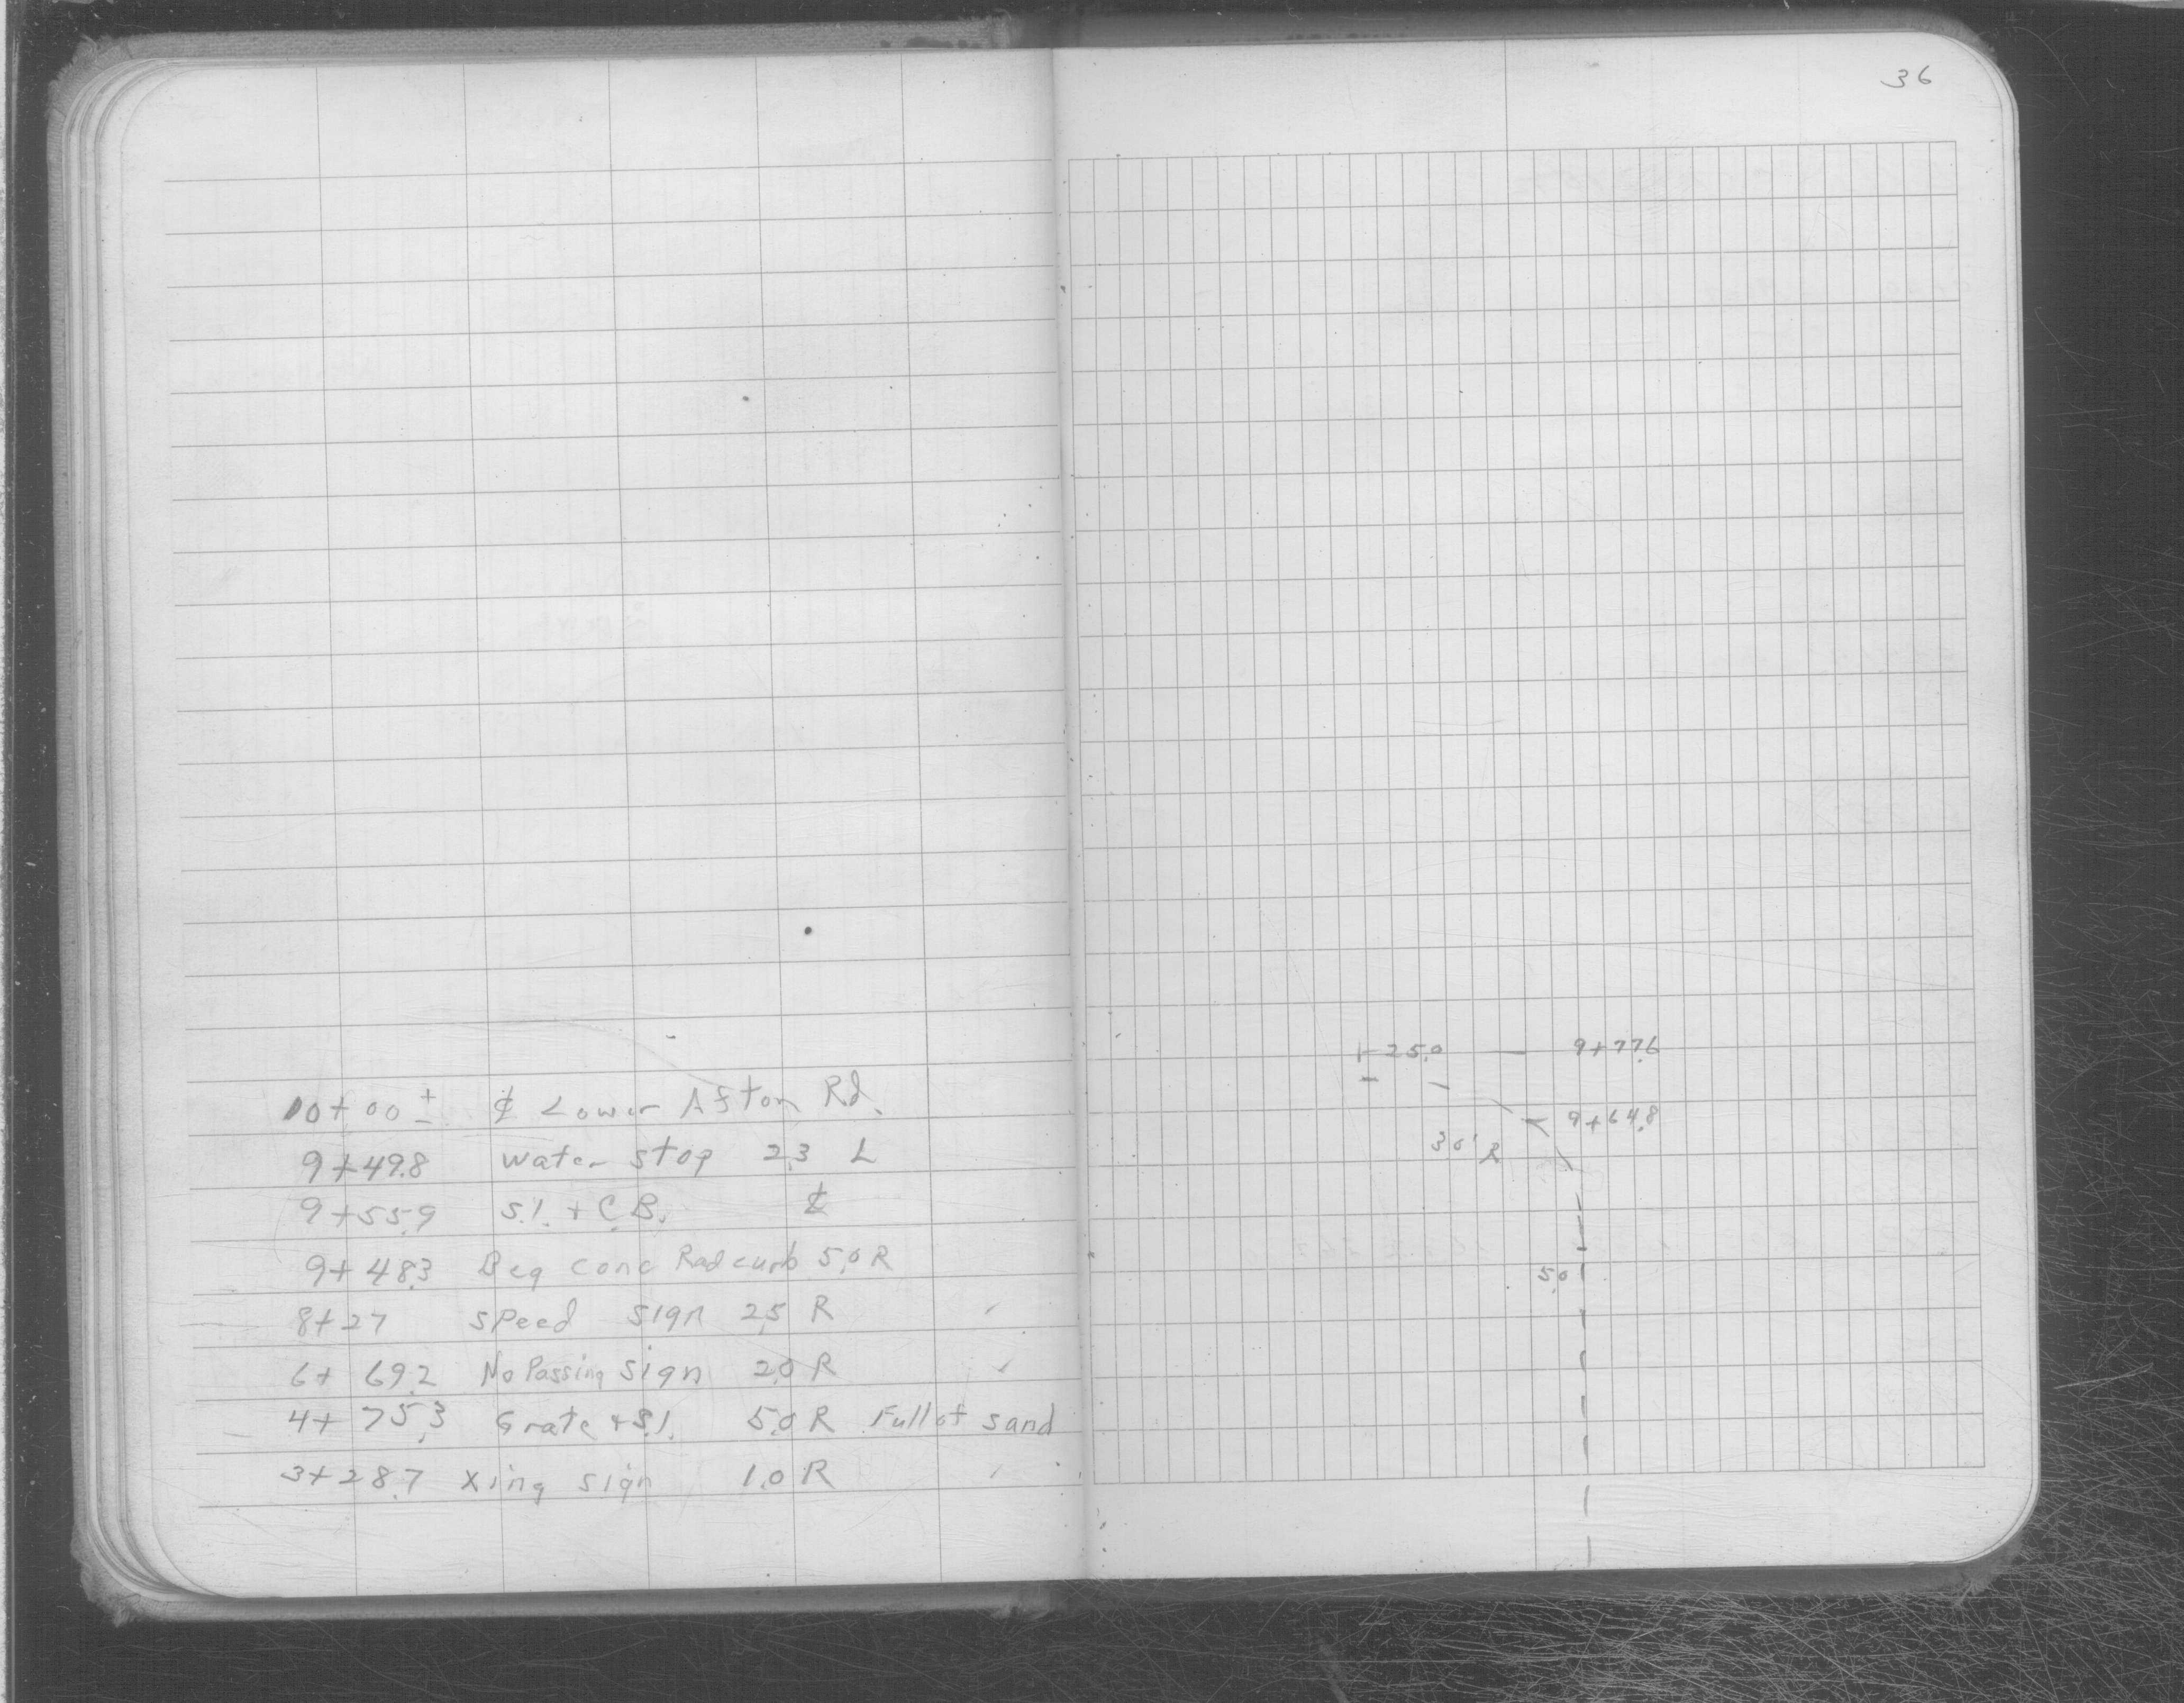 36
10+00 ± ℄ Lower Afton Rd.
9+49.8 Water stop 2.3 L
9+55.9 S.I. + C.B. ℄
9+48.3 Beg conc Rad curb 5.0 R
8+27 speed sign 2.5 R ✓
6+69.2 No Passing sign 2.0 R ✓
4+75.3 Grate + S.I. 5.0 R Full of sand
3+28.7 Xing sign 1.0 R ✓
25.0 9+77.6
9+64.8
30' R
5.0